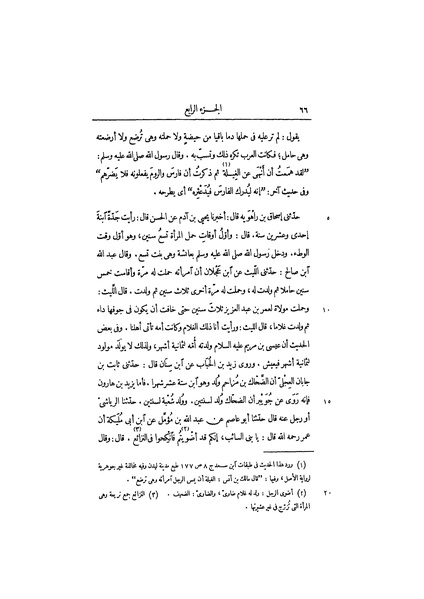 ٦٦ الجزء الرابع
يقول : لم تر عليه فى حملها دما باقيا من حيضة ولا حملته وهى تُرضع ولا أرضعته
وهى حامل؛ فكانت العرب تكره ذلك وتسبّ به . وقال رسول الله صلى الله عليه وسلم :
"لقد هَمَمتُ أن أنْهَى عن الغِيلَة (١) ثم ذكرتُ أن فارسَ والرومَ يفعلونه فلا يَضرّهم"
وفى حديث آخر : "إنه ليُدرِك الفارسَ فيُدَعْثِره" أى يطرحه .
٥ حدّثنى إسحاق بن راهَوَيه قال: أخبرنا يحيى بن آدم عن الحسن قال: رأيت جَدّةً آبنةَ
إحدى وعشرين سنة. قال : وأوّلُ أوقاتِ حملِ المرأة تسعُ سنين، وهو أوّل وقت
الوطء. ودخل رسول الله صلى الله عليه وسلم بعائشة وهى بنت تسع . وقال عبد الله
آبن صالح : حدّثنى الليث عن آبن عَجْلان أن آمرأته حملت له مرّة وأقامت خمس
سنين حاملا ثم ولدت له ، وحملت له مرّة أخرى ثلاث سنين ثم ولدت . قال الليث:
١٠ وحملت مولاة لعمر بن عبد العزيز ثلاثَ سنين حتى خافت أن يكون فى جوفها داء
ثم ولدت غلاما، قال الليث: ورأيت أنا ذلك الغلام وكانت أمه تأتى أهلنا . وفى بعض
الحديث أن عيسى بن مريم عليه السلام ولدته أُمّه لثمانية أشهر، ولذلك لا يولَد مولود
لثمانية أشهر فيعيش . وروى زيد بن الحُبَاب عن آبن سِنَان قال : حدّثنى ثابت بن
جابان العِجْلىّ أن الضَّحّاك بن مُزَاحم وُلد وهو آبن ستة عشر شهرا . فأما يزيد بن هارون
١٥ فإنه رَوَى عن جُوَيبر أن الضحاك وُلد لسنتين . ووُلد شُعْبة لسنتين . حدّثنا الرياشىّ
أو رجل عنه قال حدّثنا أبو عاصم عن عبد الله بن مُؤَمَّل عن آبن أبى مُلَيكة أن
عمر رحمه الله قال : يا بنى السائب، إنكم قد أضويتُم (٢) فآنكِحوا فى النزائع (٣) . قال: وقال
(١) ورد هذا الحديث فى طبقات آبن سعد ج ٨ ص ١٧٧ طبع مدينة ليدن وفيه مخالفة غير جوهرية
لرواية الأصل، وفيها : "قال مالك بن أنس : الغيلة أن يمس الرجل آمرأته وهى ترضع" .
٢٠ (٢) أضوى الرجل : ولد له غلام ضاوىّ، والضاوىّ : الضعيف . (٣) النزائع جمع نزيعة وهى
المرأة التى تُزوّج فى غير عشيرتها .